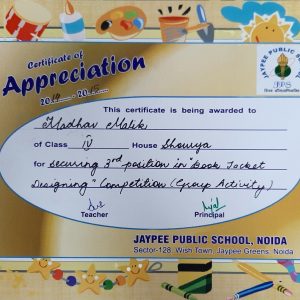 Certificate of
Appreciation
JAYPEE PUBLIC S
JPS
This certificate is being awarded to
Madhav Malik
of Class IV House Shourya
for securing 3rd position in "Book Jacket
Designing" Competition (Group Activity)
Teacher Principal
JAYPEE PUBLIC SCHOOL, NOIDA
Sector-128, Wish Town, Jaypee Greens, Noida